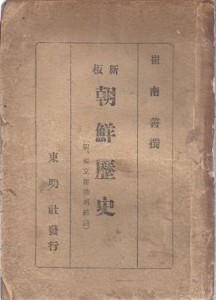 崔南善撰
新板
朝鮮歷史
東明社發行